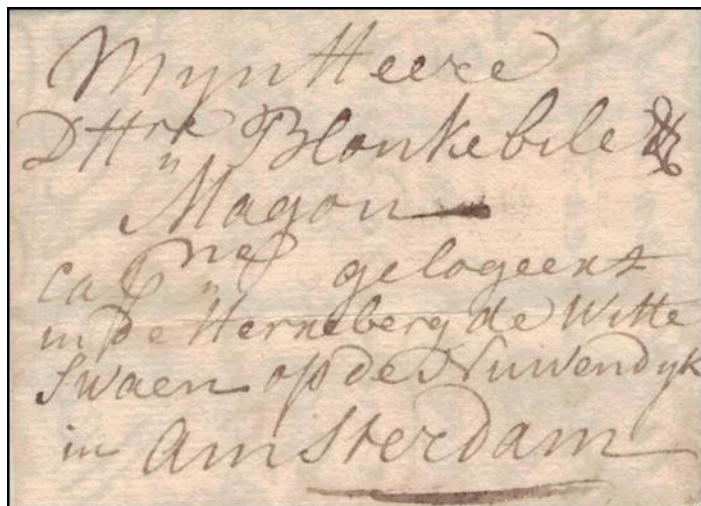 Mijn Heere
D'Hre Blonkebile &
Magon
gelogeert
in de Herreberg de Witte
Swaen op de Nuwendyk
in Amsterdam